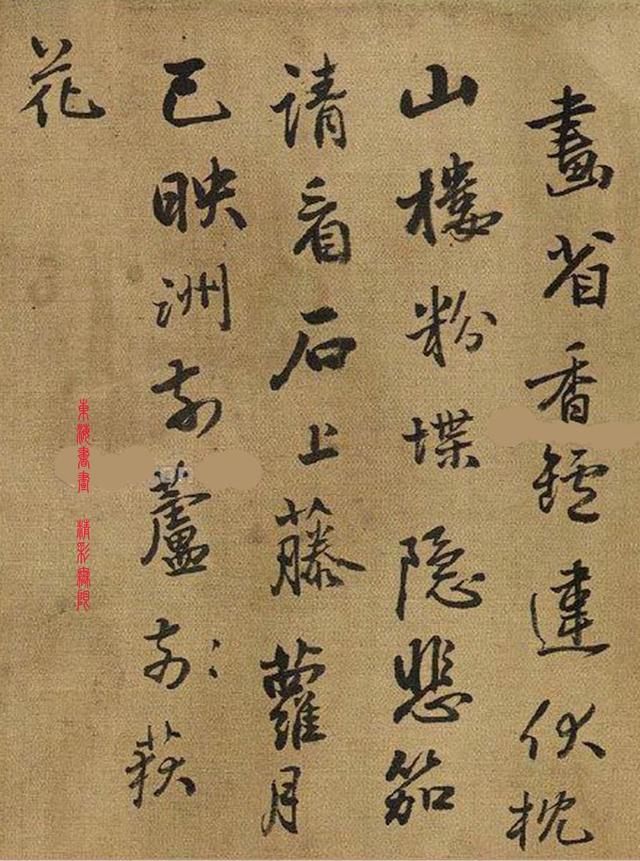 畫省香鑪違伏枕
山樓粉堞隱悲笳
請看石上藤蘿月
已映洲前蘆前荻
花
東海書畫 精彩無限